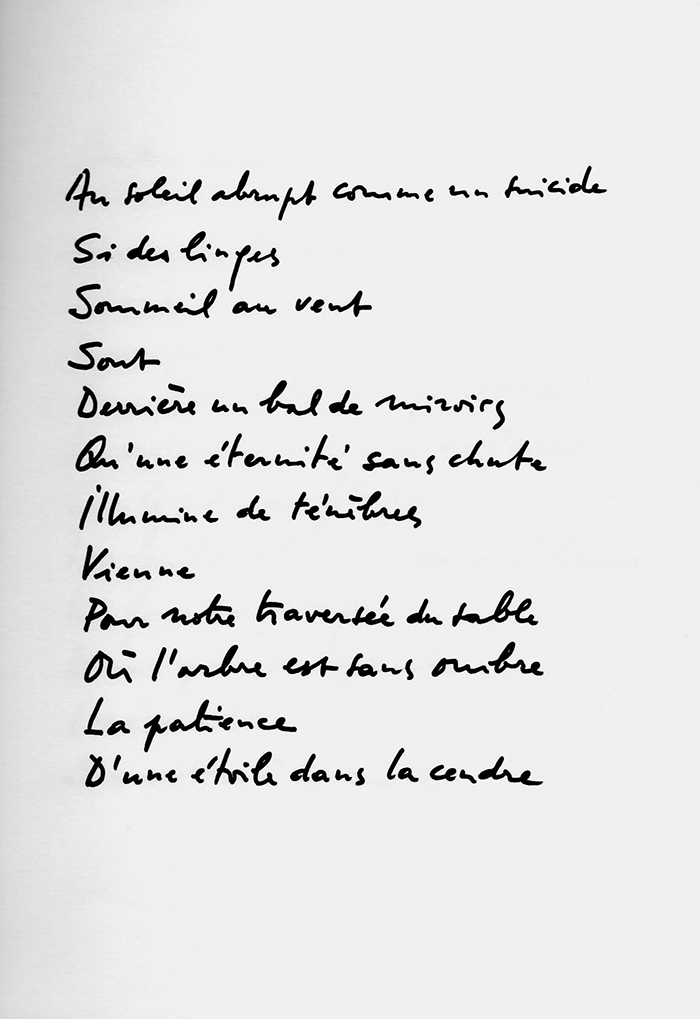 Au soleil abrupt comme un suicide
Si des linges
Sommeil au vent
Sont
Derrière un bal de miroirs
Qu'une éternité sans chute
Illumine de ténèbres
Vienne
Pour notre traversée du sable
Où l'arbre est sans ombre
La patience
D'une étoile dans la cendre